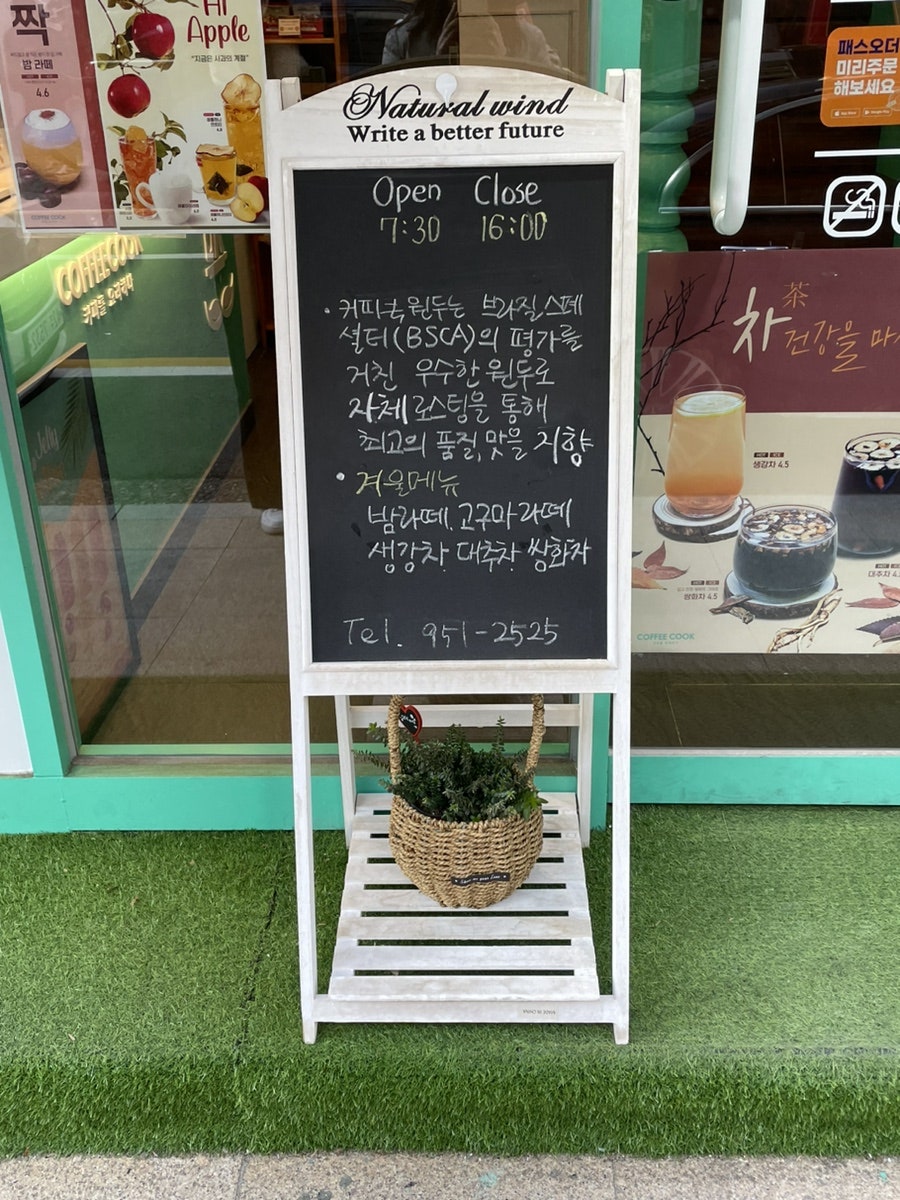 짝
밤 라떼
4.6
COFFEE COOK
Hi
Apple
"지금은 사과의 계절"
COFFEECOOK
커피를 요리하다
Natural wind
Write a better future
Open Close
7:30 16:00
· 커피쿡 원두는 브라질 스페
셜티(BSCA)의 평가를
거친 우수한 원두로
자체 로스팅을 통해
최고의 품질, 맛을 지향
· 겨울메뉴
밤라떼, 고구마라떼
생강차, 대추차, 쌍화차
Tel. 951-2525
패스오더
미리주문
해보세요
App Store
Google Play
茶
차 건강을 마
HOT ICE
생강차 4.5
HOT ICE
대추차 4.
HOT ICE
쌍화차 4.5
COFFEE COOK